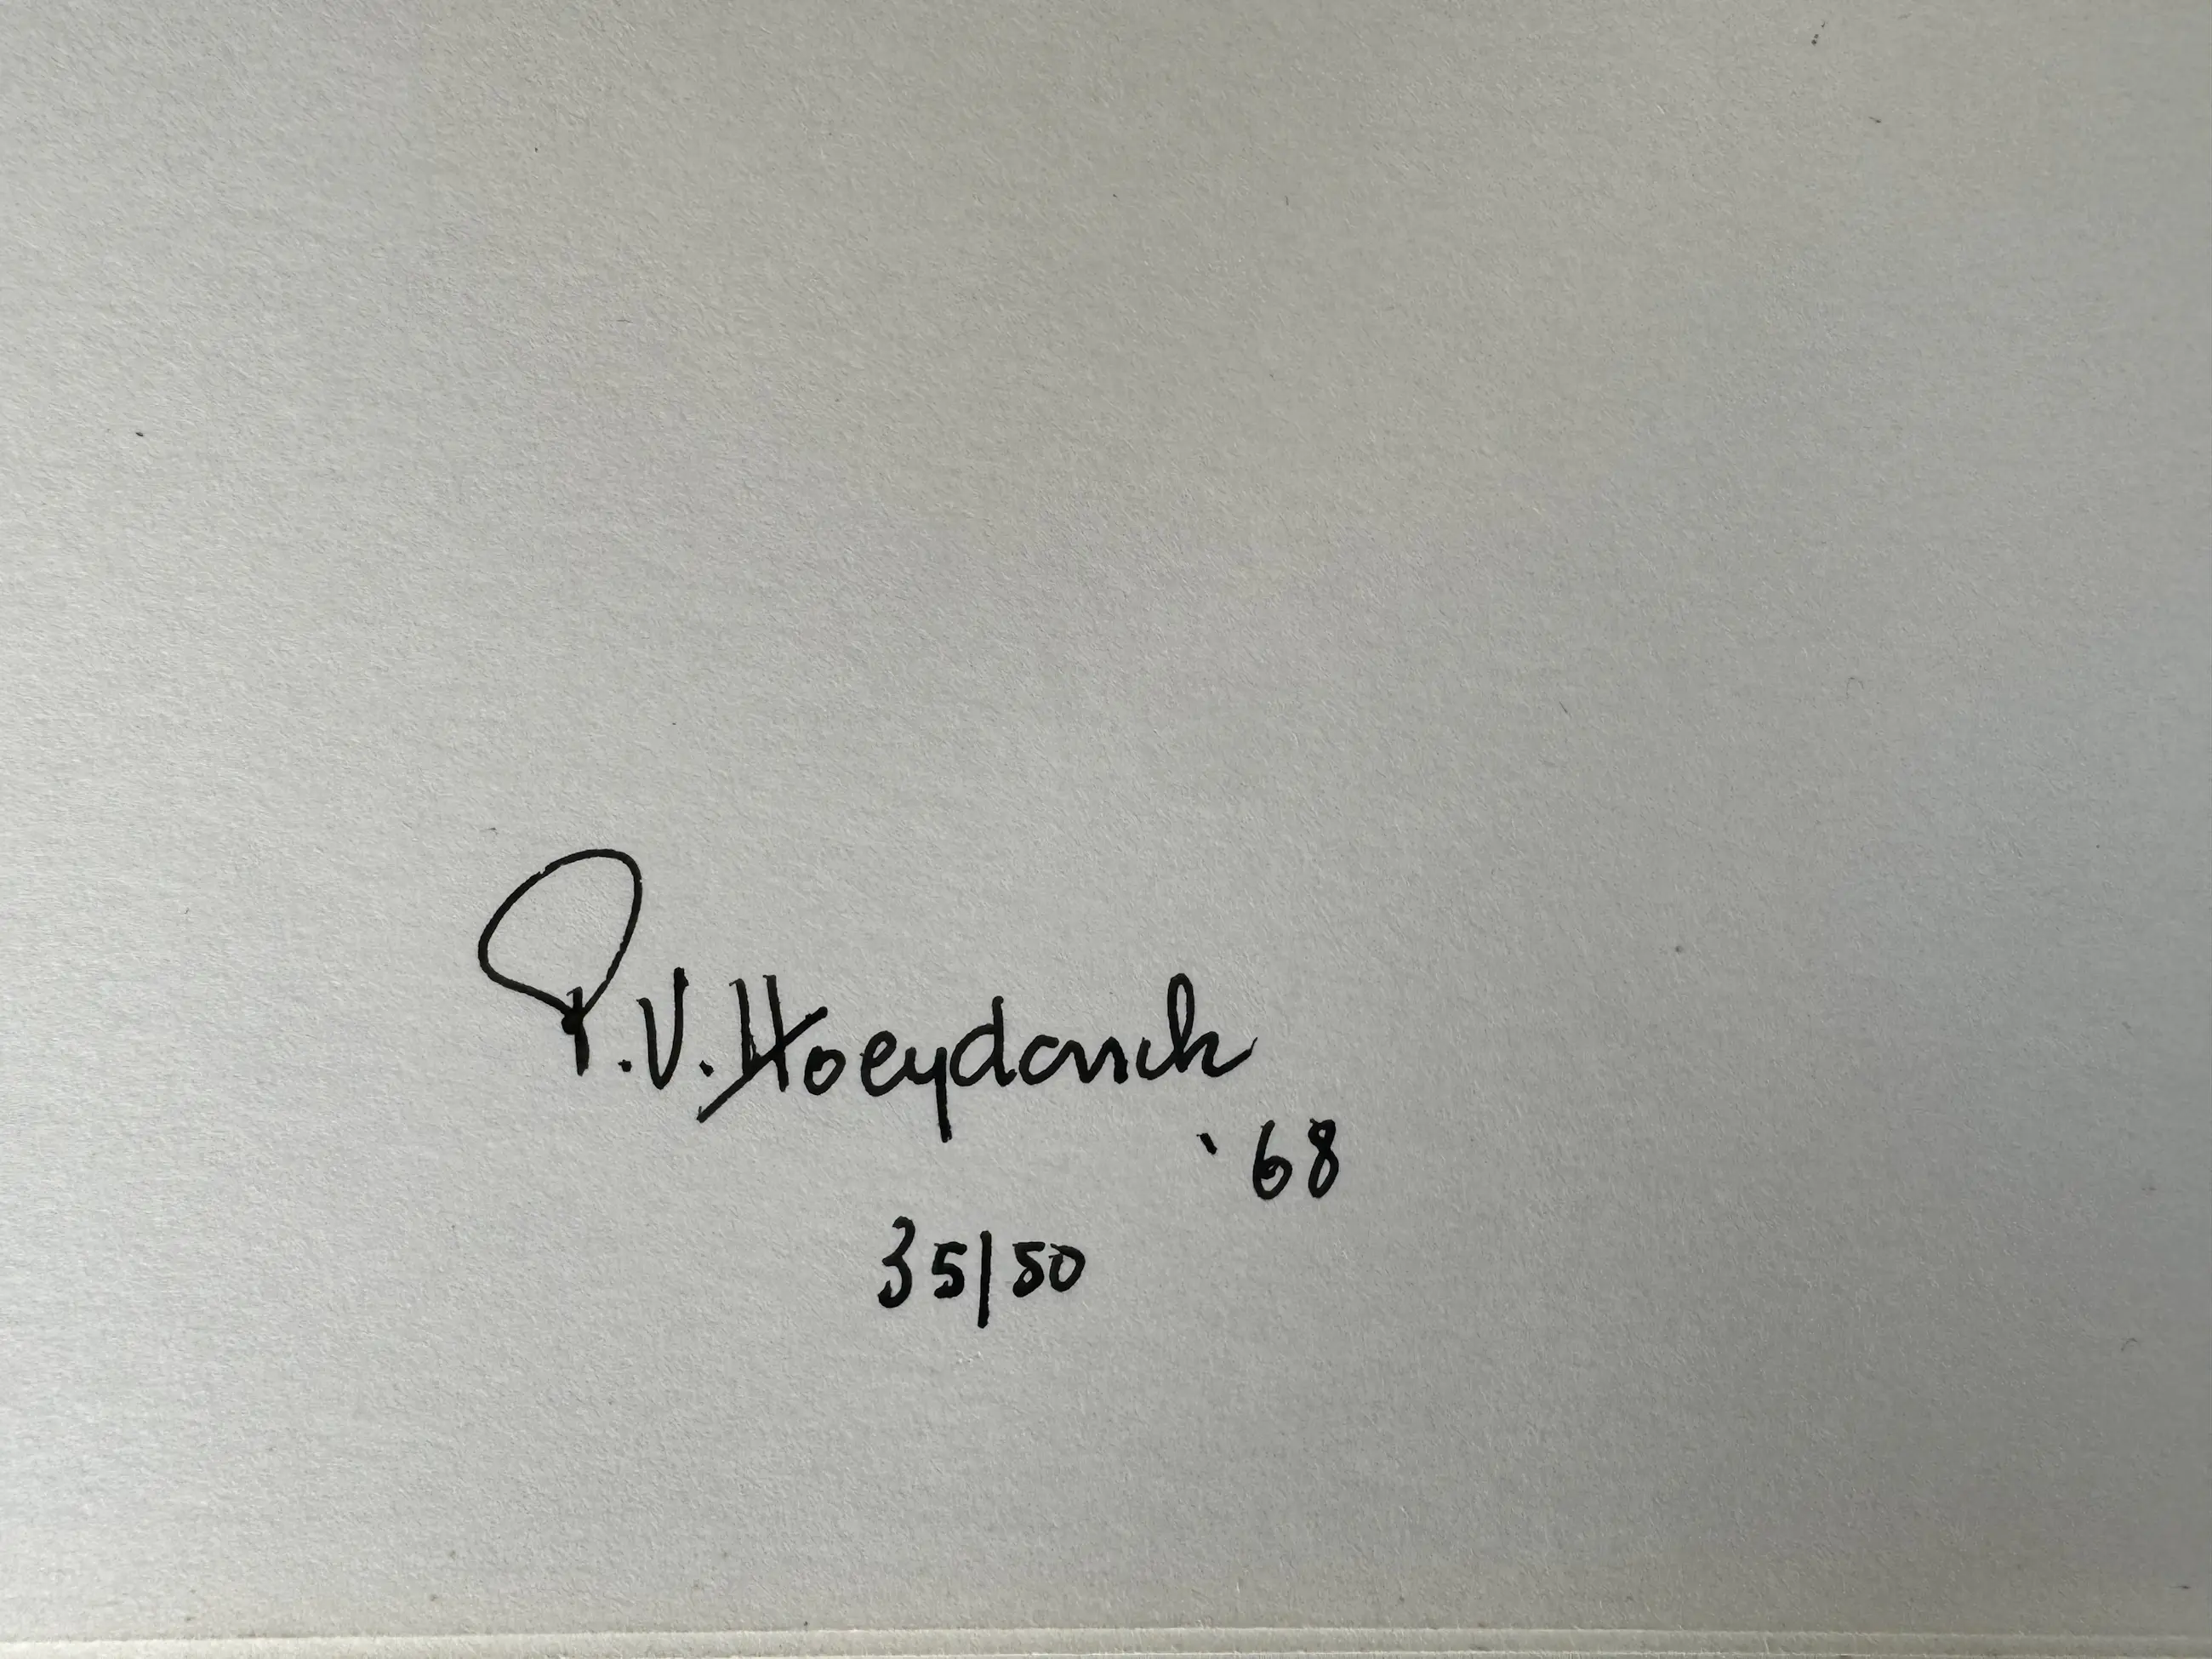 P.V. Hoeydonck
'68
35/50